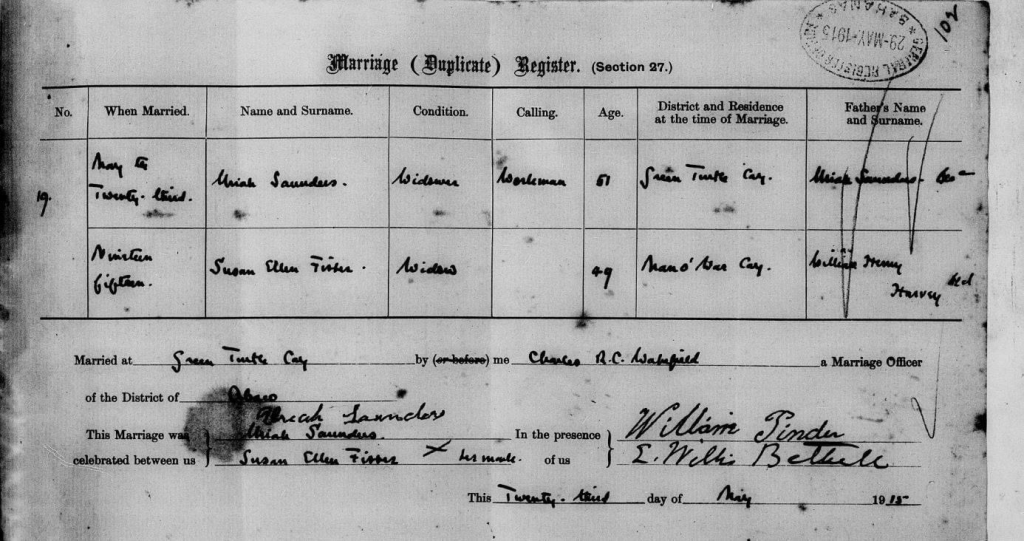 GENERAL REGISTER OFFICE
29-MAY-1915
* BAHAMAS *
102
Marriage (Duplicate) Register. (Section 27.)
No. When Married. Name and Surname. Condition. Calling. Age. District and Residence at the time of Marriage. Father's Name and Surname.
19. May the Twenty-third. Uriah Saunders. Widower Workman 51 Green Turtle Cay. Uriah Saunders
Nineteen fifteen. Susan Ellen Fisher. Widow 49 Man o' War Cay. William Henry Harvey
Married at Green Turtle Cay by (or before) me Charles R.C. Wakefield a Marriage Officer
of the District of Abaco
Uriah Saunders
This Marriage was Uriah Saunders. In the presence William Pinder
celebrated between us Susan Ellen Fisher X her mark. of us E. Willis Bethell
This Twenty-third day of May 1915